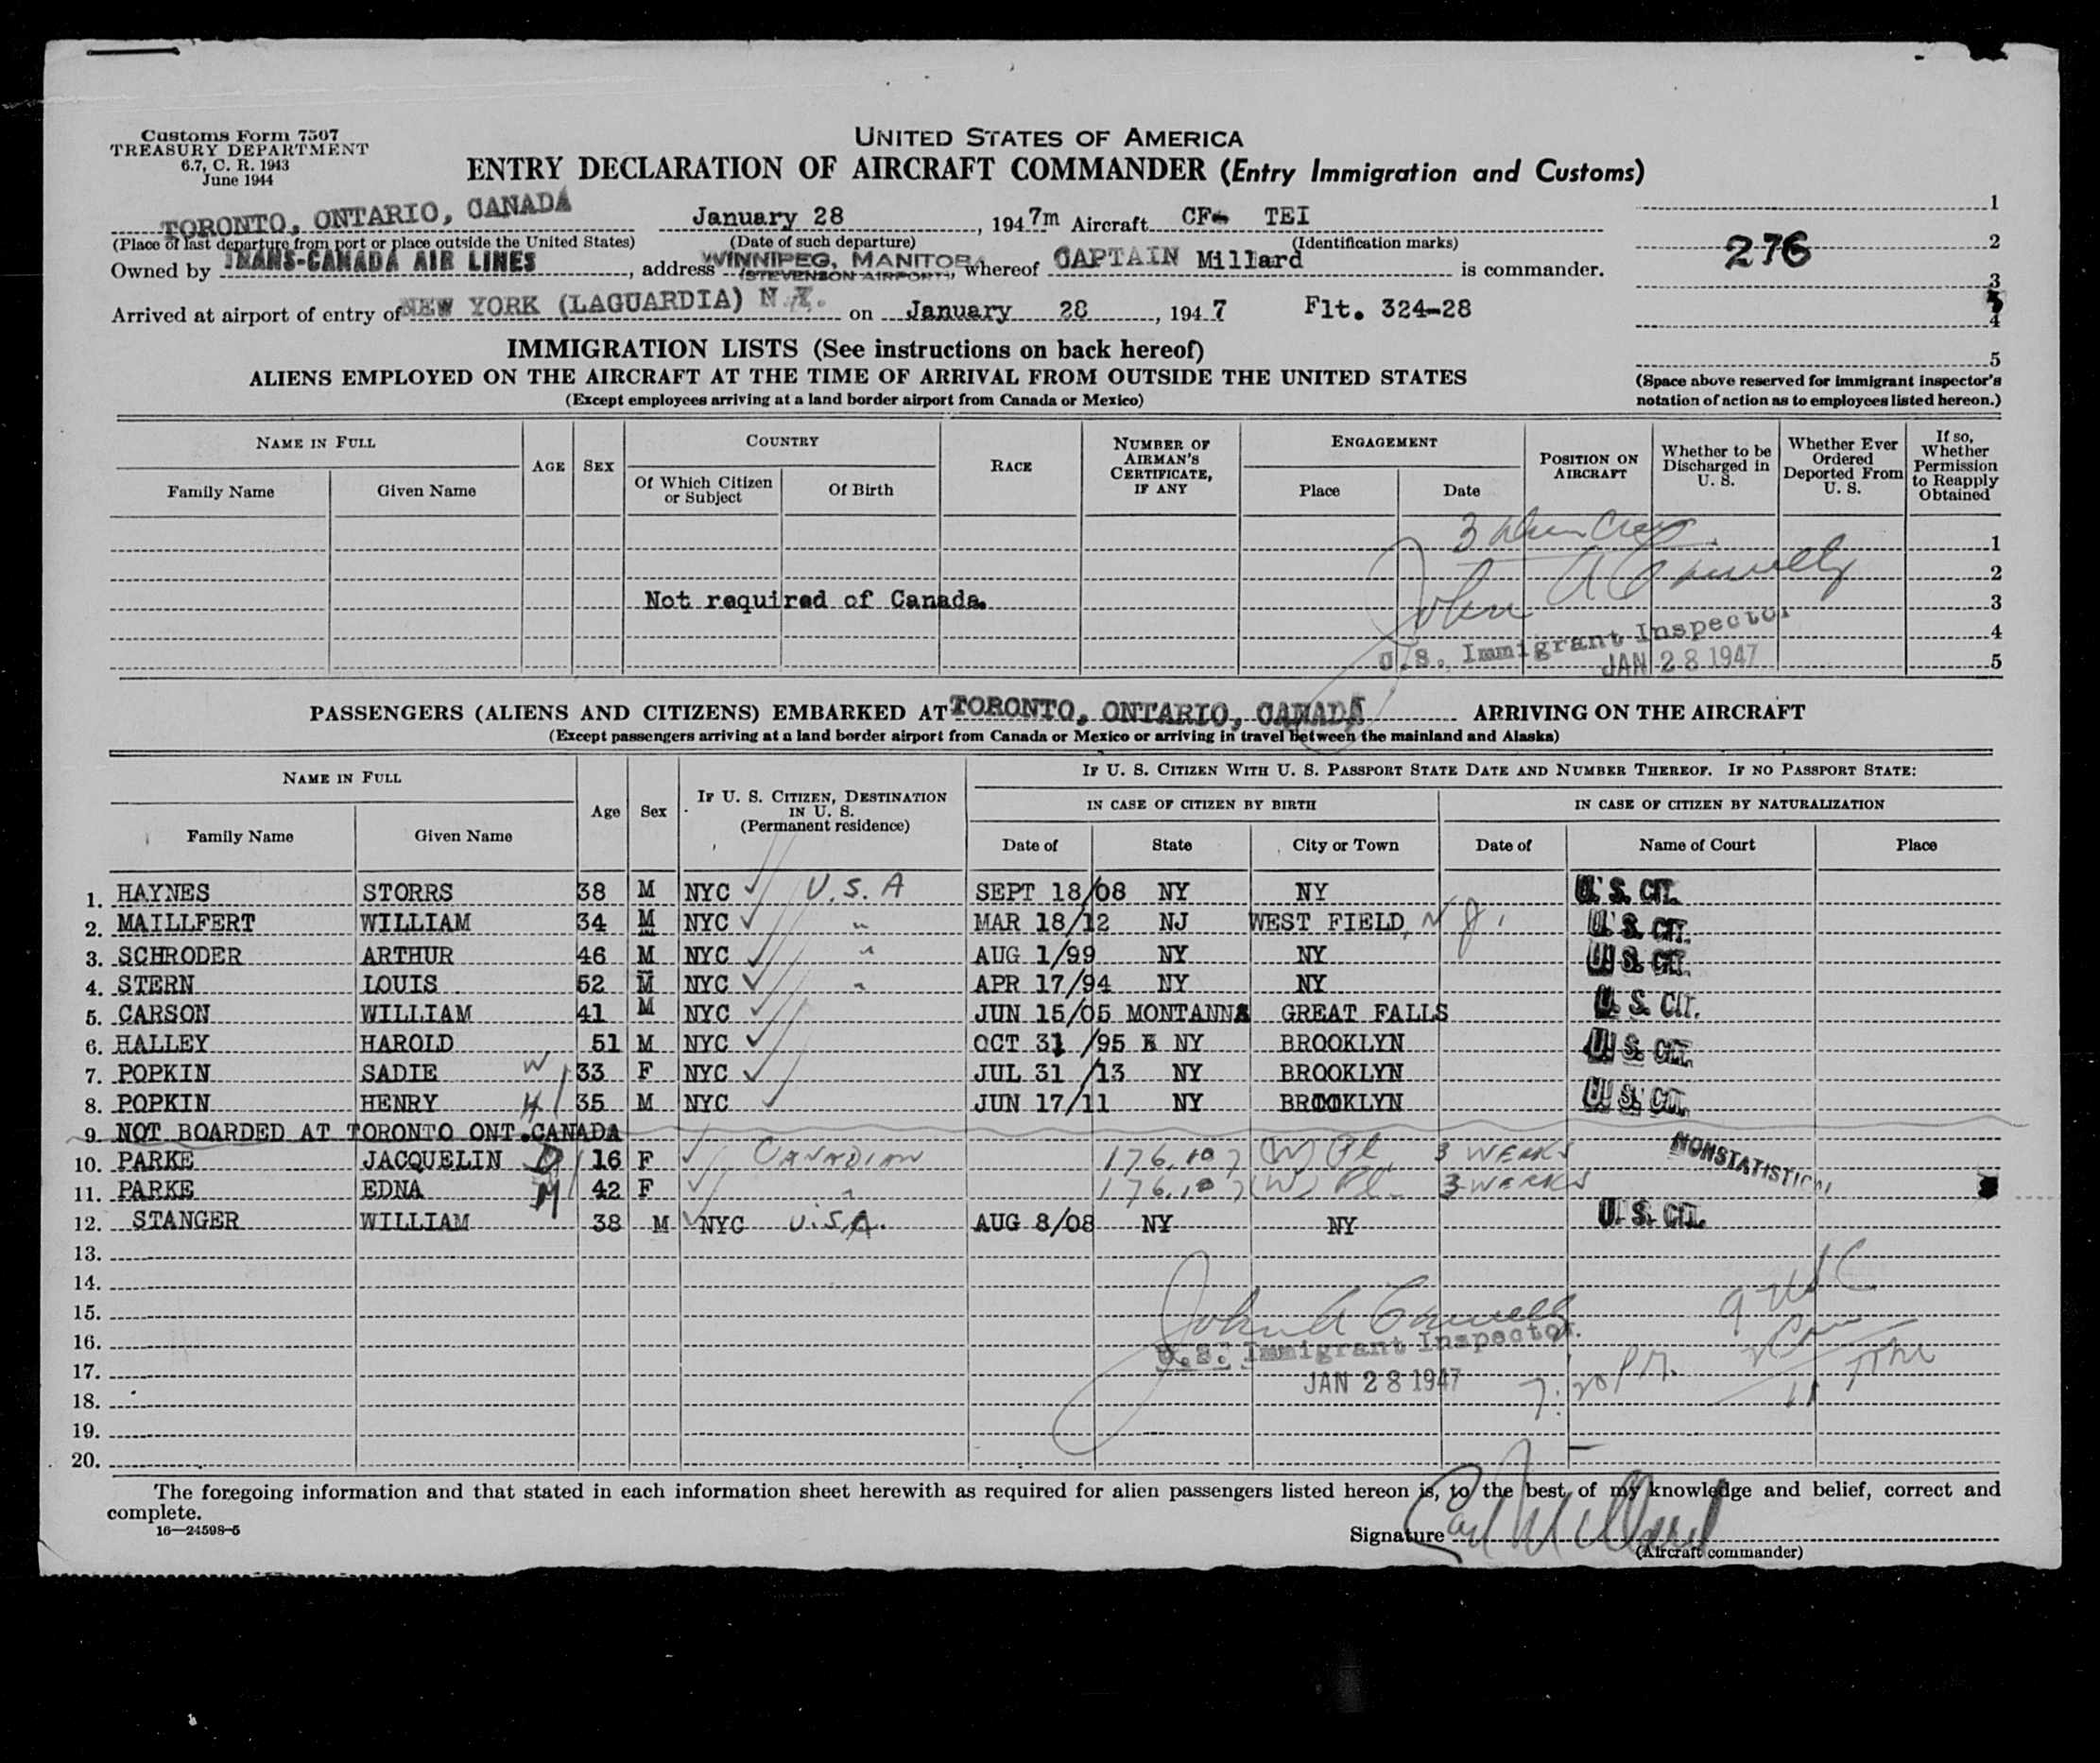 Customs Form 7507
TREASURY DEPARTMENT
6.7, C. R. 1943
June 1944
UNITED STATES OF AMERICA
ENTRY DECLARATION OF AIRCRAFT COMMANDER (Entry Immigration and Customs)
TORONTO, ONTARIO, CANADA January 28, 1947m Aircraft CF- TEI 1
(Place of last departure from port or place outside the United States) (Date of such departure) (Identification marks)
276 2
Owned by TRANS-CANADA AIR LINES, address WINNIPEG, MANITOBA (STEVENSON AIRPORT), whereof CAPTAIN Millard is commander. 3
Arrived at airport of entry of NEW YORK (LAGUARDIA) N.Y. on January 28, 1947 Flt. 324-28 4
IMMIGRATION LISTS (See instructions on back hereof) 5
ALIENS EMPLOYED ON THE AIRCRAFT AT THE TIME OF ARRIVAL FROM OUTSIDE THE UNITED STATES
(Except employees arriving at a land border airport from Canada or Mexico)
(Space above reserved for immigrant inspector's
notation of action as to employees listed hereon.)
NAME IN FULL AGE SEX COUNTRY RACE NUMBER OF AIRMAN'S CERTIFICATE, IF ANY ENGAGEMENT POSITION ON AIRCRAFT Whether to be Discharged in U. S. Whether Ever Ordered Deported From U. S. If so, Whether Permission to Reapply Obtained
Family Name Given Name Of Which Citizen or Subject Of Birth Place Date
3 Crew 1
John A 2
Not required of Canada. 3
U.S. Immigrant Inspector 4
JAN 28 1947 5
PASSENGERS (ALIENS AND CITIZENS) EMBARKED AT TORONTO, ONTARIO, CANADA ARRIVING ON THE AIRCRAFT
(Except passengers arriving at a land border airport from Canada or Mexico or arriving in travel between the mainland and Alaska)
NAME IN FULL Age Sex IF U. S. CITIZEN, DESTINATION IN U. S. (Permanent residence) IF U. S. CITIZEN WITH U. S. PASSPORT STATE DATE AND NUMBER THEREOF. IF NO PASSPORT STATE:
IN CASE OF CITIZEN BY BIRTH IN CASE OF CITIZEN BY NATURALIZATION
Family Name Given Name Date of State City or Town Date of Name of Court Place
1. HAYNES STORRS 38 M NYC ✓ U.S.A SEPT 18/08 NY NY U. S. CIT.
2. MAILLFERT WILLIAM 34 M NYC ✓ " MAR 18/12 NJ WEST FIELD, N J. U. S. CIT.
3. SCHRODER ARTHUR 46 M NYC ✓ " AUG 1/99 NY NY U. S. CIT.
4. STERN LOUIS 52 M NYC ✓ " APR 17/94 NY NY
5. CARSON WILLIAM 41 M NYC ✓ JUN 15/05 MONTANNA GREAT FALLS U. S. CIT.
6. HALLEY HAROLD 51 M NYC ✓ OCT 31 /95 NY BROOKLYN U. S. CIT.
7. POPKIN SADIE W 33 F NYC ✓ JUL 31 /13 NY BROOKLYN
8. POPKIN HENRY H 35 M NYC ✓ JUN 17/11 NY BROOKLYN U. S. CIT.
9. NOT BOARDED AT TORONTO ONT.CANADA
10. PARKE JACQUELIN D 16 F ✓ CANADIAN 176.107 (W) Pl. 3 WEEKS NONSTATISTICAL
11. PARKE EDNA M 42 F ✓ " 176.107 (W) Pl. 3 WEEKS
12. STANGER WILLIAM 38 M ✓ NYC U.S.A. AUG 8/08 NY NY U. S. CIT.
13.
14.
15. John A 9 USC
16. U.S. Immigrant Inspector
17. JAN 28 1947 7:20 P.M. 11
18.
19.
20.
The foregoing information and that stated in each information sheet herewith as required for alien passengers listed hereon is, to the best of my knowledge and belief, correct and
complete.
16—24598-5
Signature Earl Millard
(Aircraft commander)